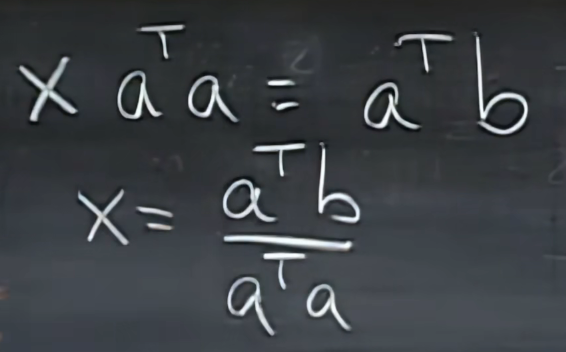 x aᵀa = aᵀb
x = aᵀb / aᵀa